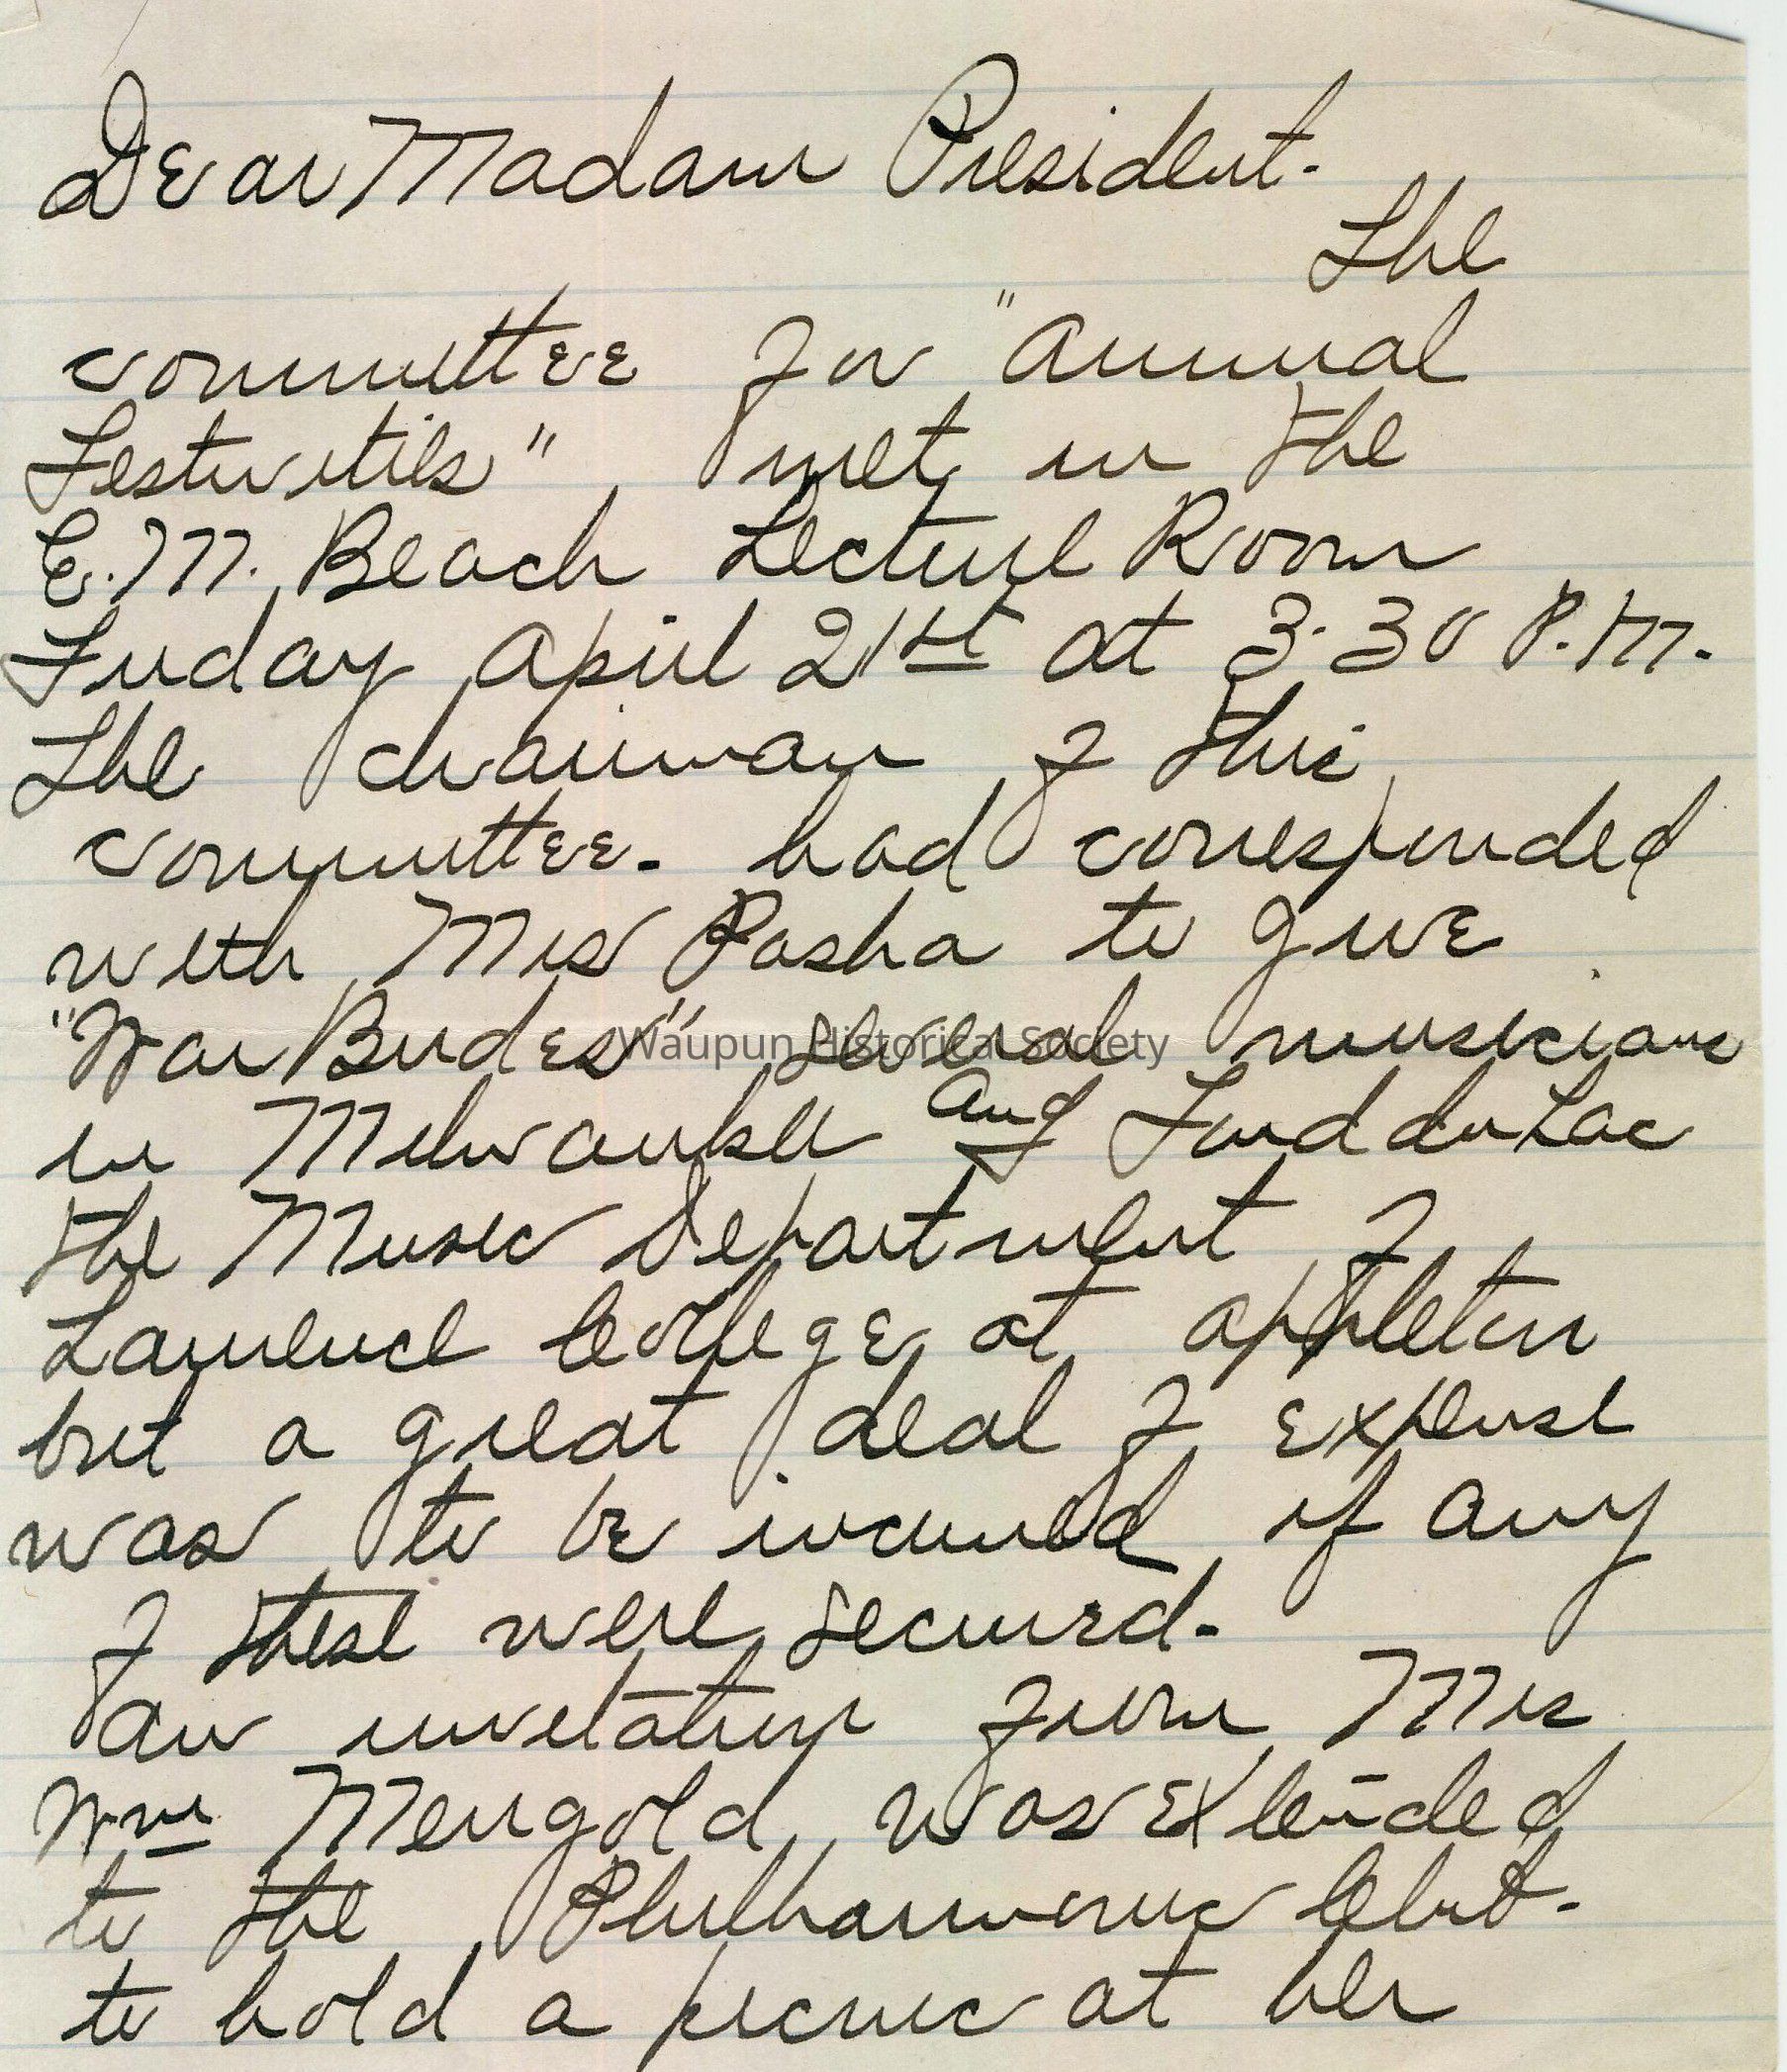 Dear Madam President.
The
committee for "Annual
Festivities" met in the
E. M. Beach Lecture Room
Friday April 21st at 3.30 P.M.
The chairman of this
committee. had corresponded
with Mrs Pasha to give
"War Brides" several musicians
Waupun Historical Society
in Milwaukee and Fond du Lac
the Music Department of
Lawrence College, at Appleton
but a great deal of expense
was to be incurred if any
of these were secured.
An invitation from Mrs
Wm Mengold was extended
to the Philharmonic Club.
to hold a picnic at her